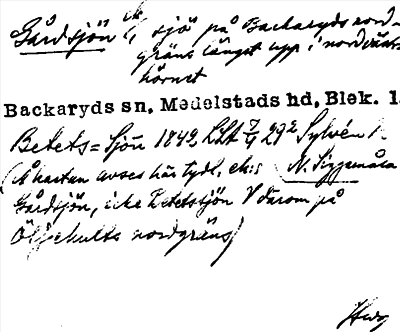 Gårdsjön ek, sjö på Backaryds nord-
gräns längst upp i nordvästr.
hörnet
Backaryds sn, Medelstads hd, Blek. l.
Betets=Sjön 1842 LSA 29² Sylvén
(Å kartan avses här tydl. ek: N. Siggamåla
Gårdsjön, icke Betetssjön V därom på
Öljehults nordgräns)